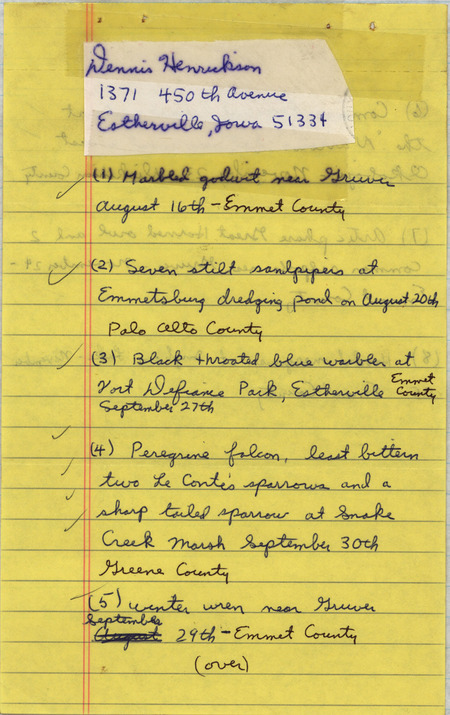 Dennis Henrickson
1371 450th Avenue
Estherville, Iowa 51334
(1) Marbled godwit near Gruver
August 16th - Emmet County
(2) Seven stilt sandpipers at
Emmetsburg dredging pond on August 20th
Palo Alto County
(3) Black throated blue warbler at
Fort Defiance Park, Estherville Emmet County
September 27th
(4) Peregrine falcon, least bittern
two Le Conte's sparrows and a
sharp tailed sparrow at Snake
Creek Marsh September 30th
Greene County
(5) winter wren near Gruver
September
August 29th - Emmet County
(over)